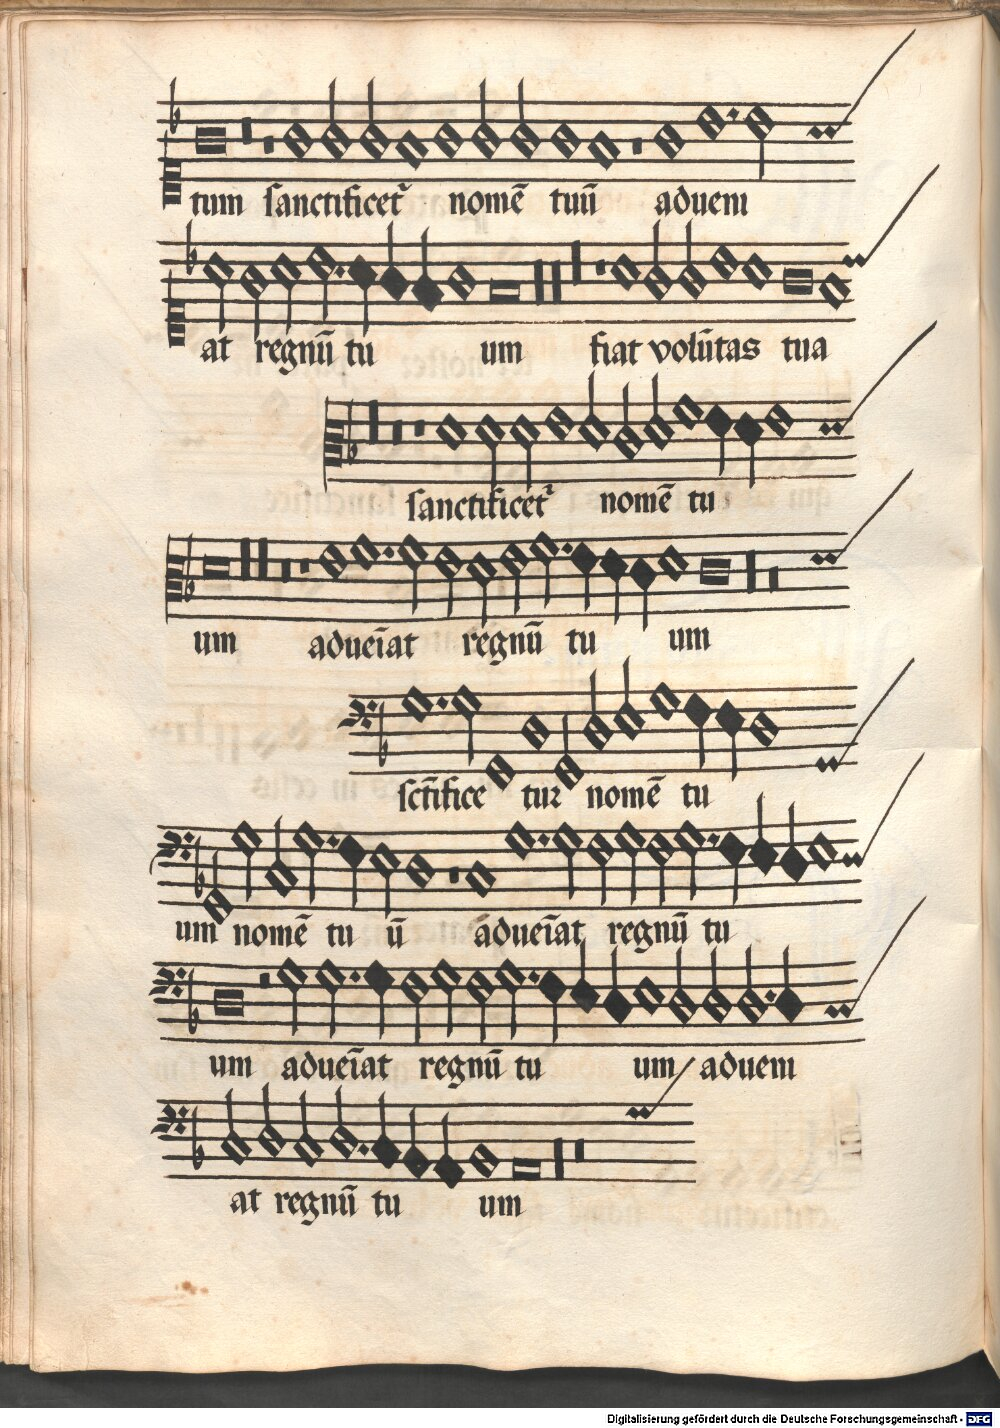 tum sanctificet᷑ nomē tuū adueni
at regnū tu um fiat volūtas tua
sanctificet᷑ nomē tu
um adueīat regnū tu um
sctīfice tur nomē tu
um nomē tu ū adueīat regnū tu
um adueīat regnū tu um adueni
at regnū tu um
Digitalisierung gefördert durch die Deutsche Forschungsgemeinschaft - DFG